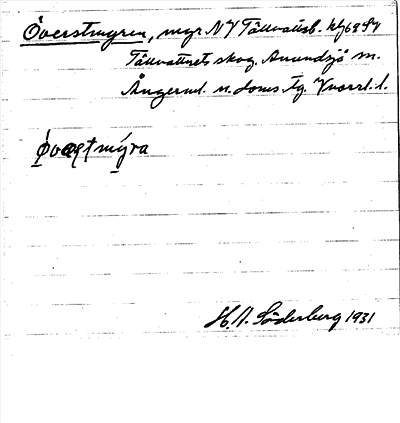 Överstmyren, mgr. NV Tällvattsb. kbl 69 Sy
Tällvattnets skog. Anundsjö sn.
Ångerml. n. doms. tg. Vnorrl. l.
H. A. Söderberg 1931